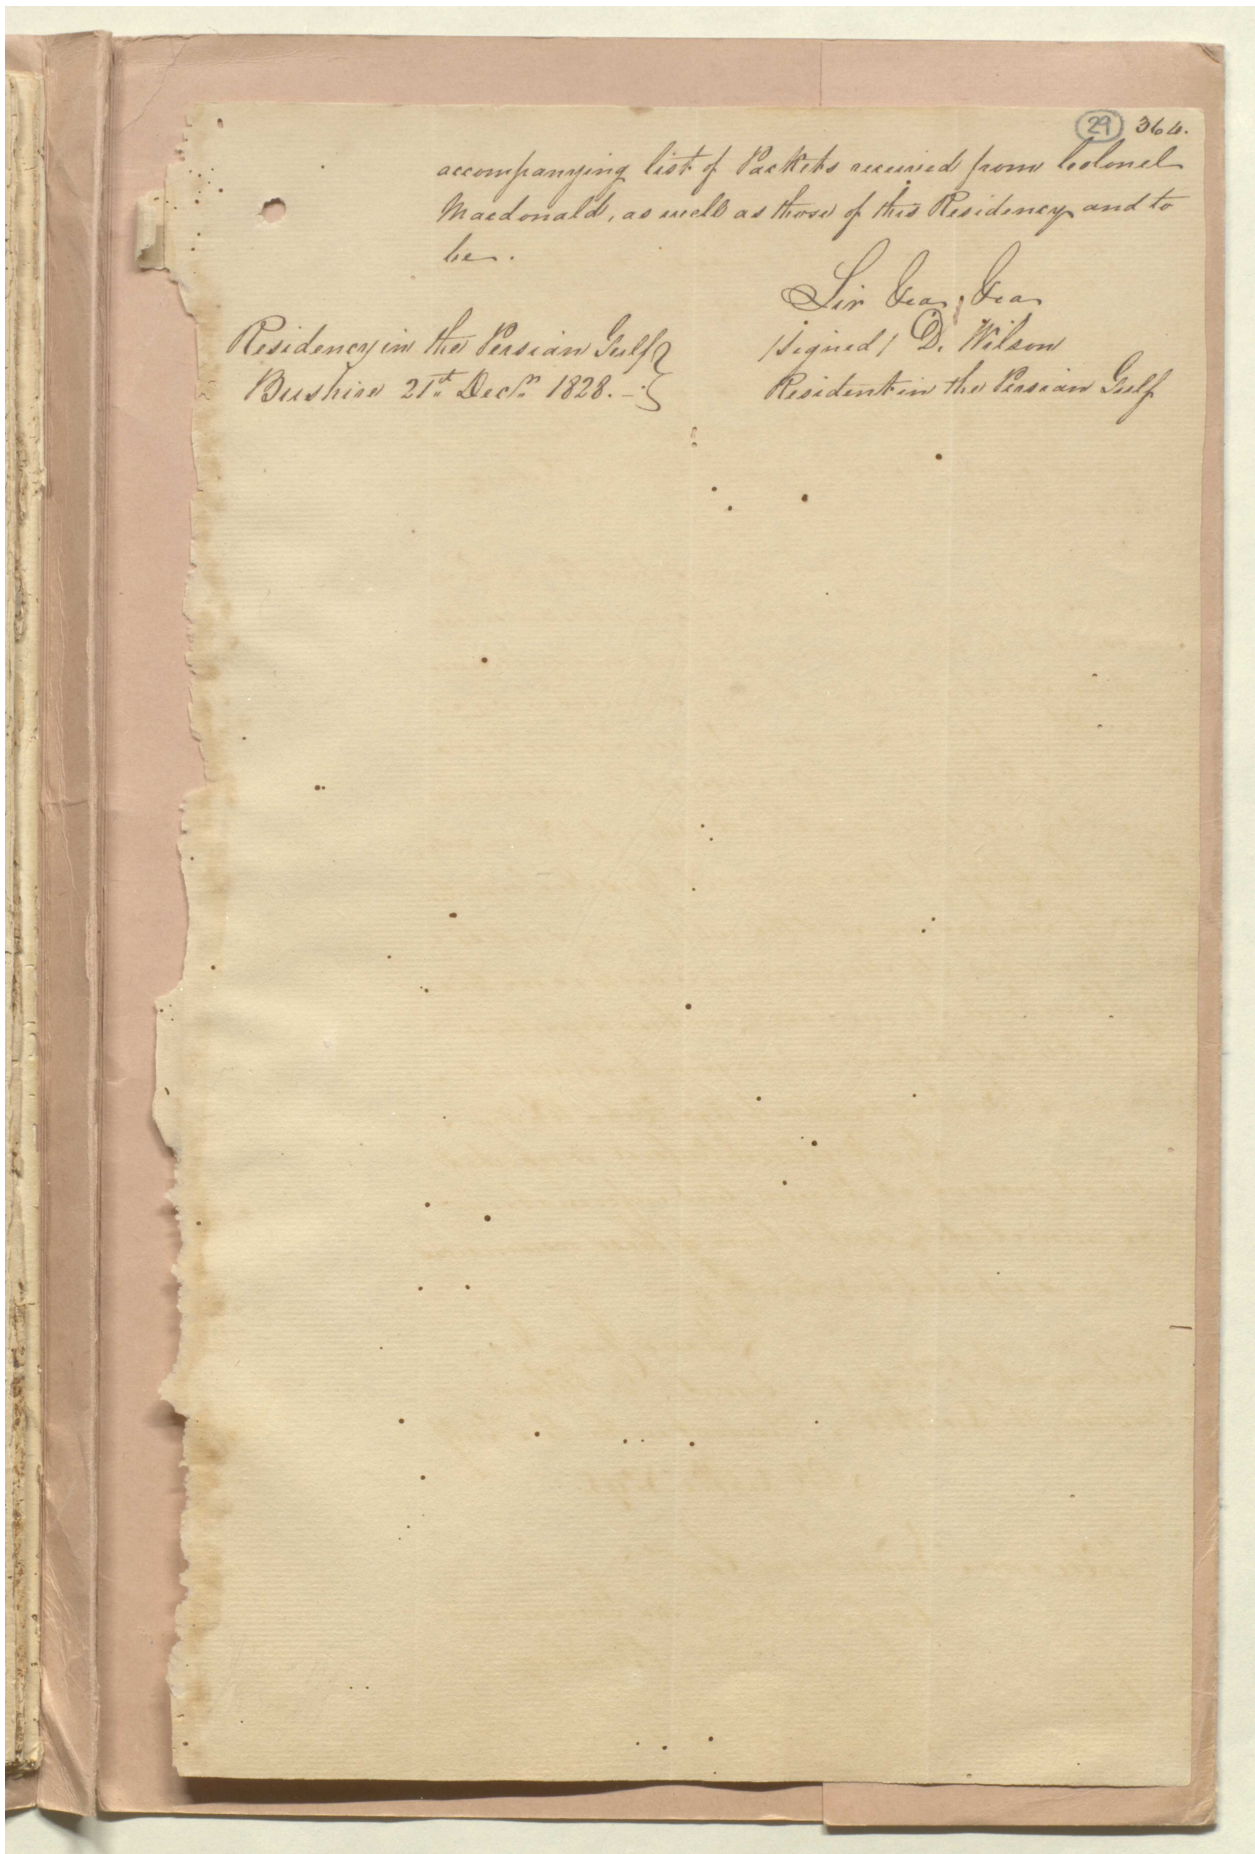 29 364.
accompanying list of Packets received from Colonel
Macdonald, as well as those of this Residency and to
be.
Sir &ca, &ca
Residency in the Persian Gulf }
Bushire 21st Decr. 1828. - }
/signed/ D. Wilson
Resident in the Persian Gulf